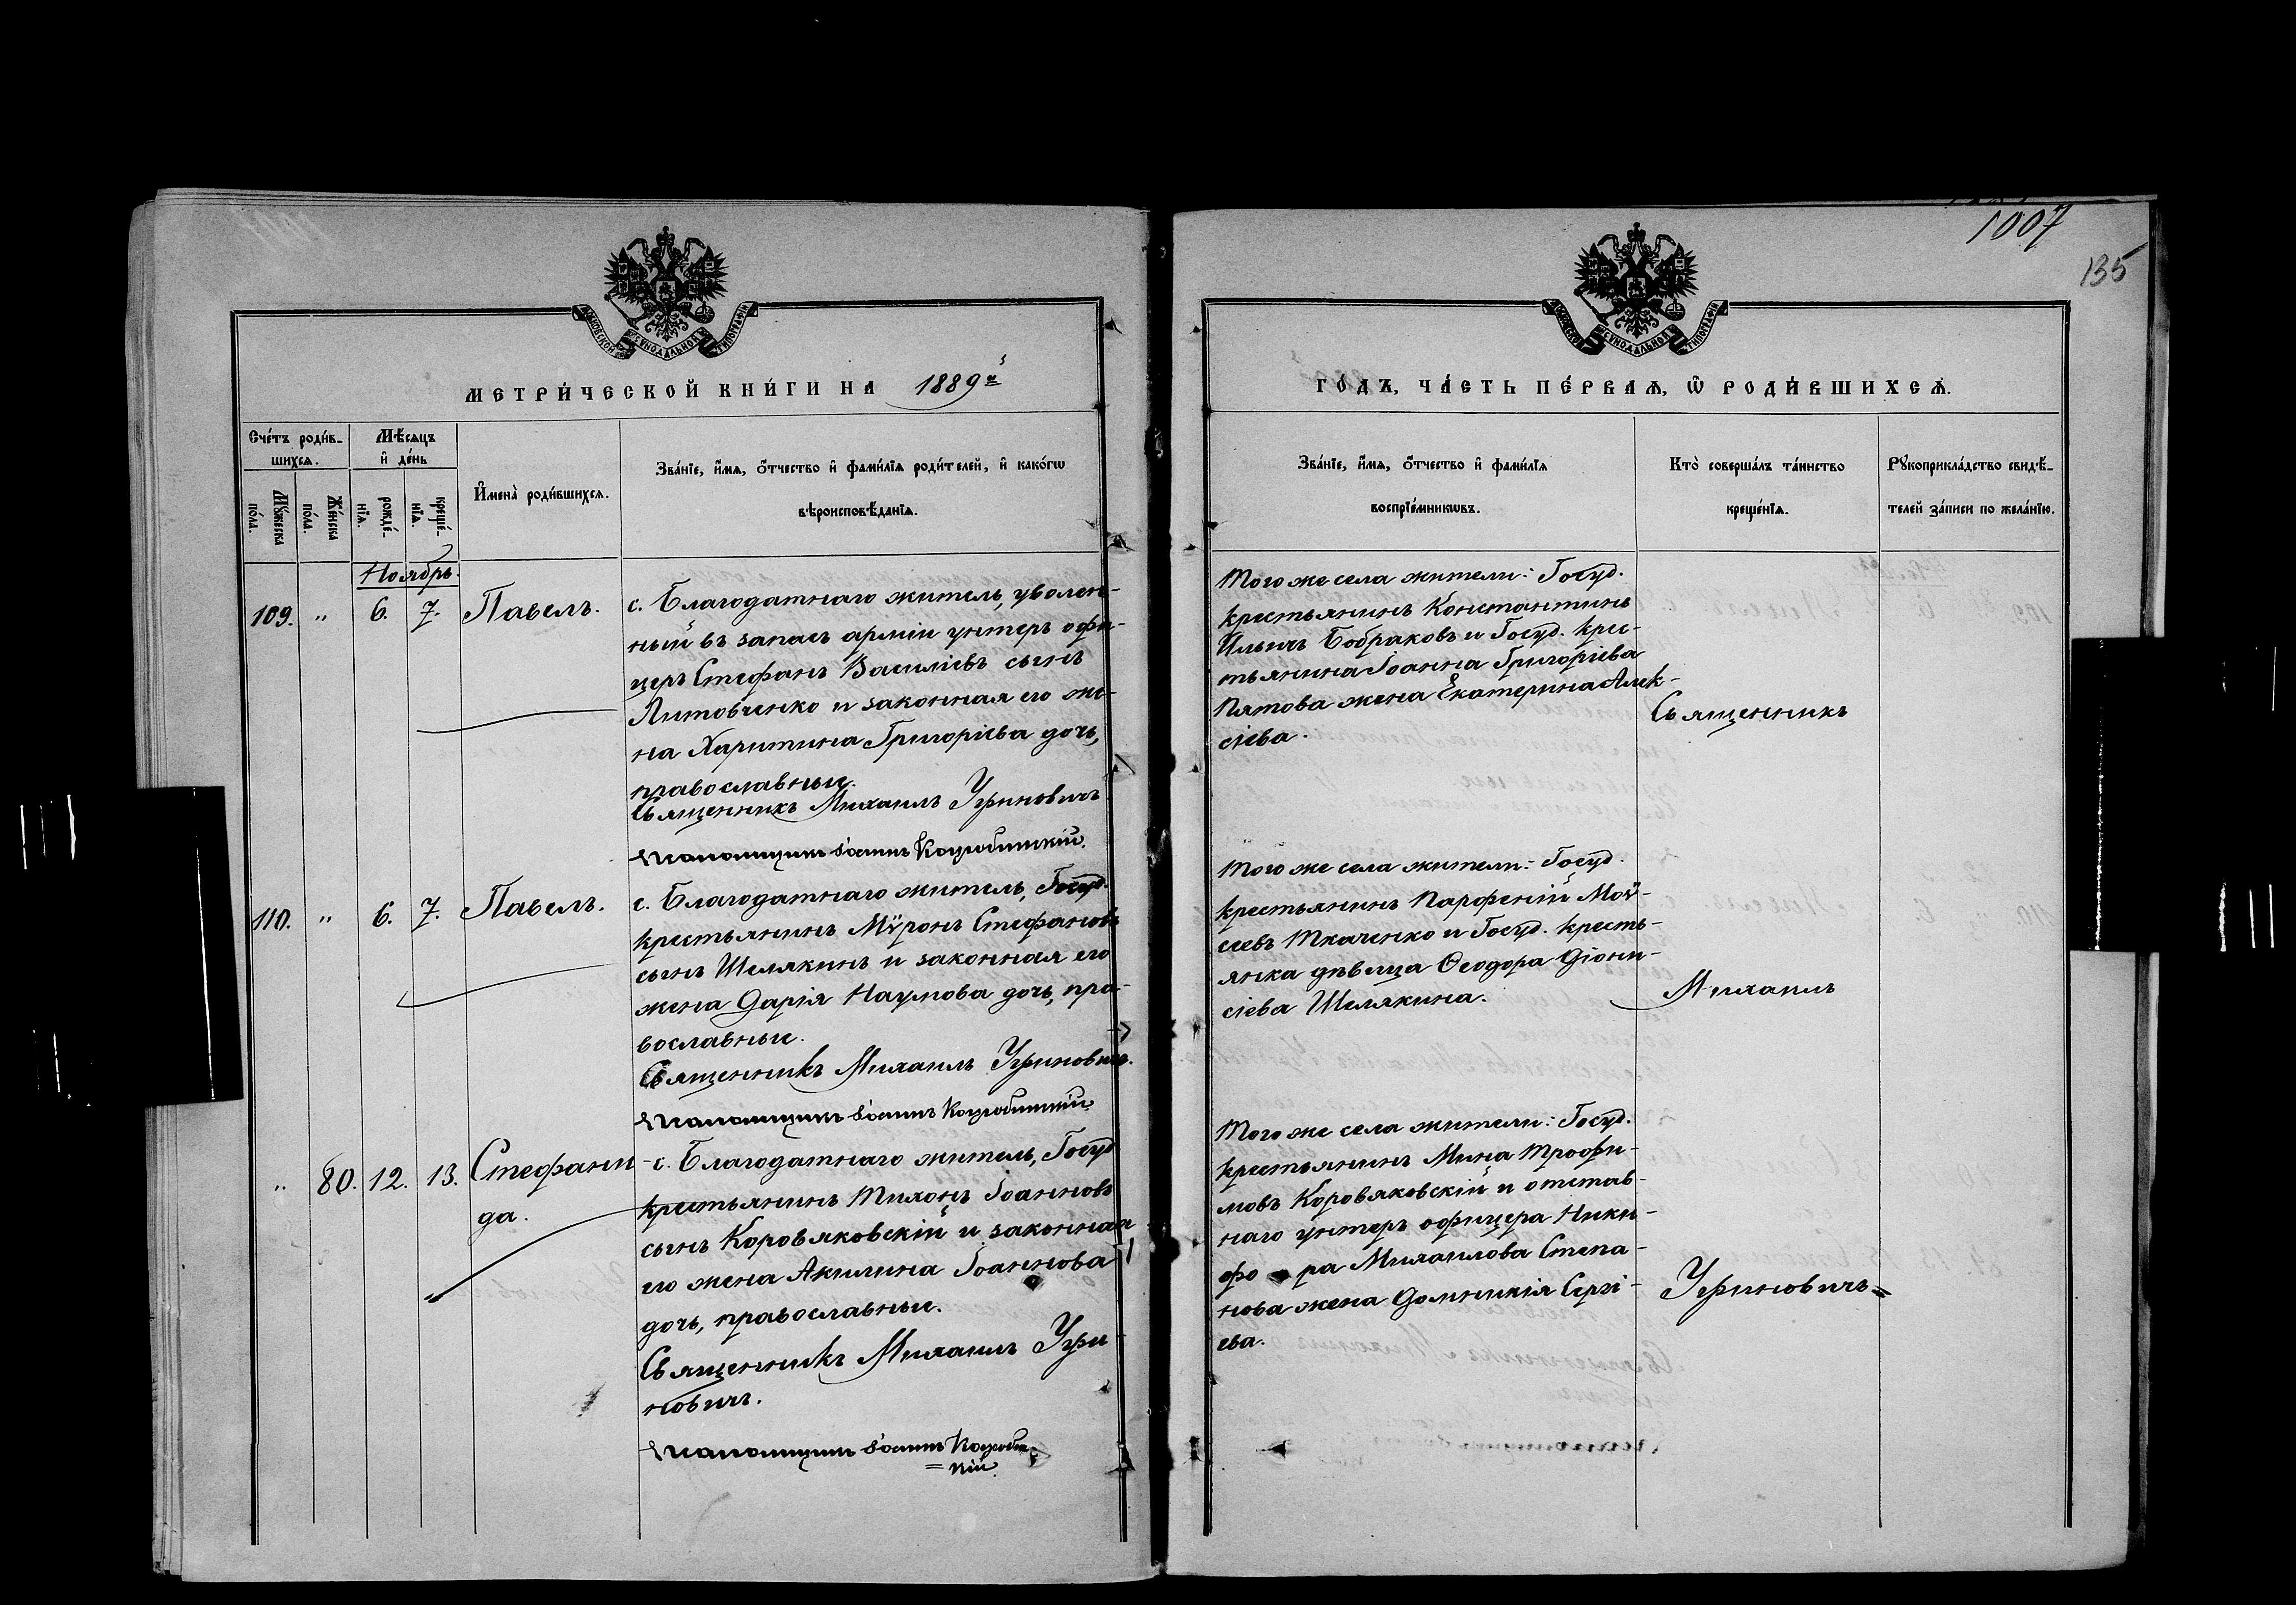 1007
135
МОСКОВСКОЙ СУНОДАЛЬНОЙ ТИПОГРАФІИ
МОСКОВСКОЙ СУНОДАЛЬНОЙ ТИПОГРАФІИ
МЕТРИ́ЧЕСКОЙ КНИ́ГИ НА 1889й
ГО́ДЪ, ЧА́СТЬ ПЕ́РВАЯ, Ѡ РОДИ́ВШИХСЯ.
Сче́тъ роди́в-
шихся.
Мѣ́сяцъ
и҆ де́нь
Мꙋ́жеска
по́ла.
Же́нска
по́ла.
рожде́-
нїя.
креще́-
нїя.
И҆мена̀ роди́вшихся.
Зва́нїе, и҆́мя, о҆́тчество и҆ фами́лїя роди́телей, и҆ како́гѡ
вѣроисповѣ́данїя.
Зва́нїе, и҆́мя, о҆́тчество и҆ фами́лїя
воспрїе́мникѡвъ.
Кто̀ соверша́лъ та́инство
креще́нїя.
Рꙋкоприкла́дство свидѣ́-
телей за́писи по жела́нїю.
Ноябрь.
109. " 6. 7. Павелъ.
с. Благодатнаго житель, уволен-
ный въ запасъ арміи унтеръ офи-
церъ Стефанъ Василіевъ сынъ
Литовченко и законная его же-
на Харитина Григоріева дочь,
православные.
Священникъ Михаилъ Угриновичъ
Псаломщикъ Іоаннъ
Того же села жители: Госуд.
крестьянинъ Константинъ
Ильичъ Бобраковъ и Госуд. крес-
тьянина Іоанна Григоріева
Пятова жена Екатерина Алек-
сіева.
Священникъ
110. " 6. 7. Павелъ.
с. Благодатнаго житель, Госуд.
крестьянинъ Мѵронъ Стефановъ
сынъ Шелякинъ и законная его
жена Дарія Наумова дочь, пра-
вославные.
Священникъ Михаилъ Угриновичъ.
Псаломщикъ Іоаннъ
Того же села жители: Госуд.
крестьянинъ Парфеній Мοѵ-
сеевъ Ткаченко и Госуд. кресть-
янка дѣвица Ѳеодора Діони-
сіева Шелякина.
Михаилъ
" 80. 12. 13. Стефани-
да.
с. Благодатнаго житель, Госуд.
крестьянинъ Тихонъ Іоанновъ
сынъ Коровяковскій и законная
его жена Акилина Іоаннова
дочь, православные.
Священникъ Михаилъ Угри-
новичъ.
Псаломщикъ Іоаннъ
Того же села жители: Госуд.
крестьянинъ Мина Трофи-
мовъ Коровяковскій и отстав-
наго унтеръ офицера Ники-
фо ра Михаилова Степа-
нова жена Домникія Сергі-
ева.
Угриновичъ=